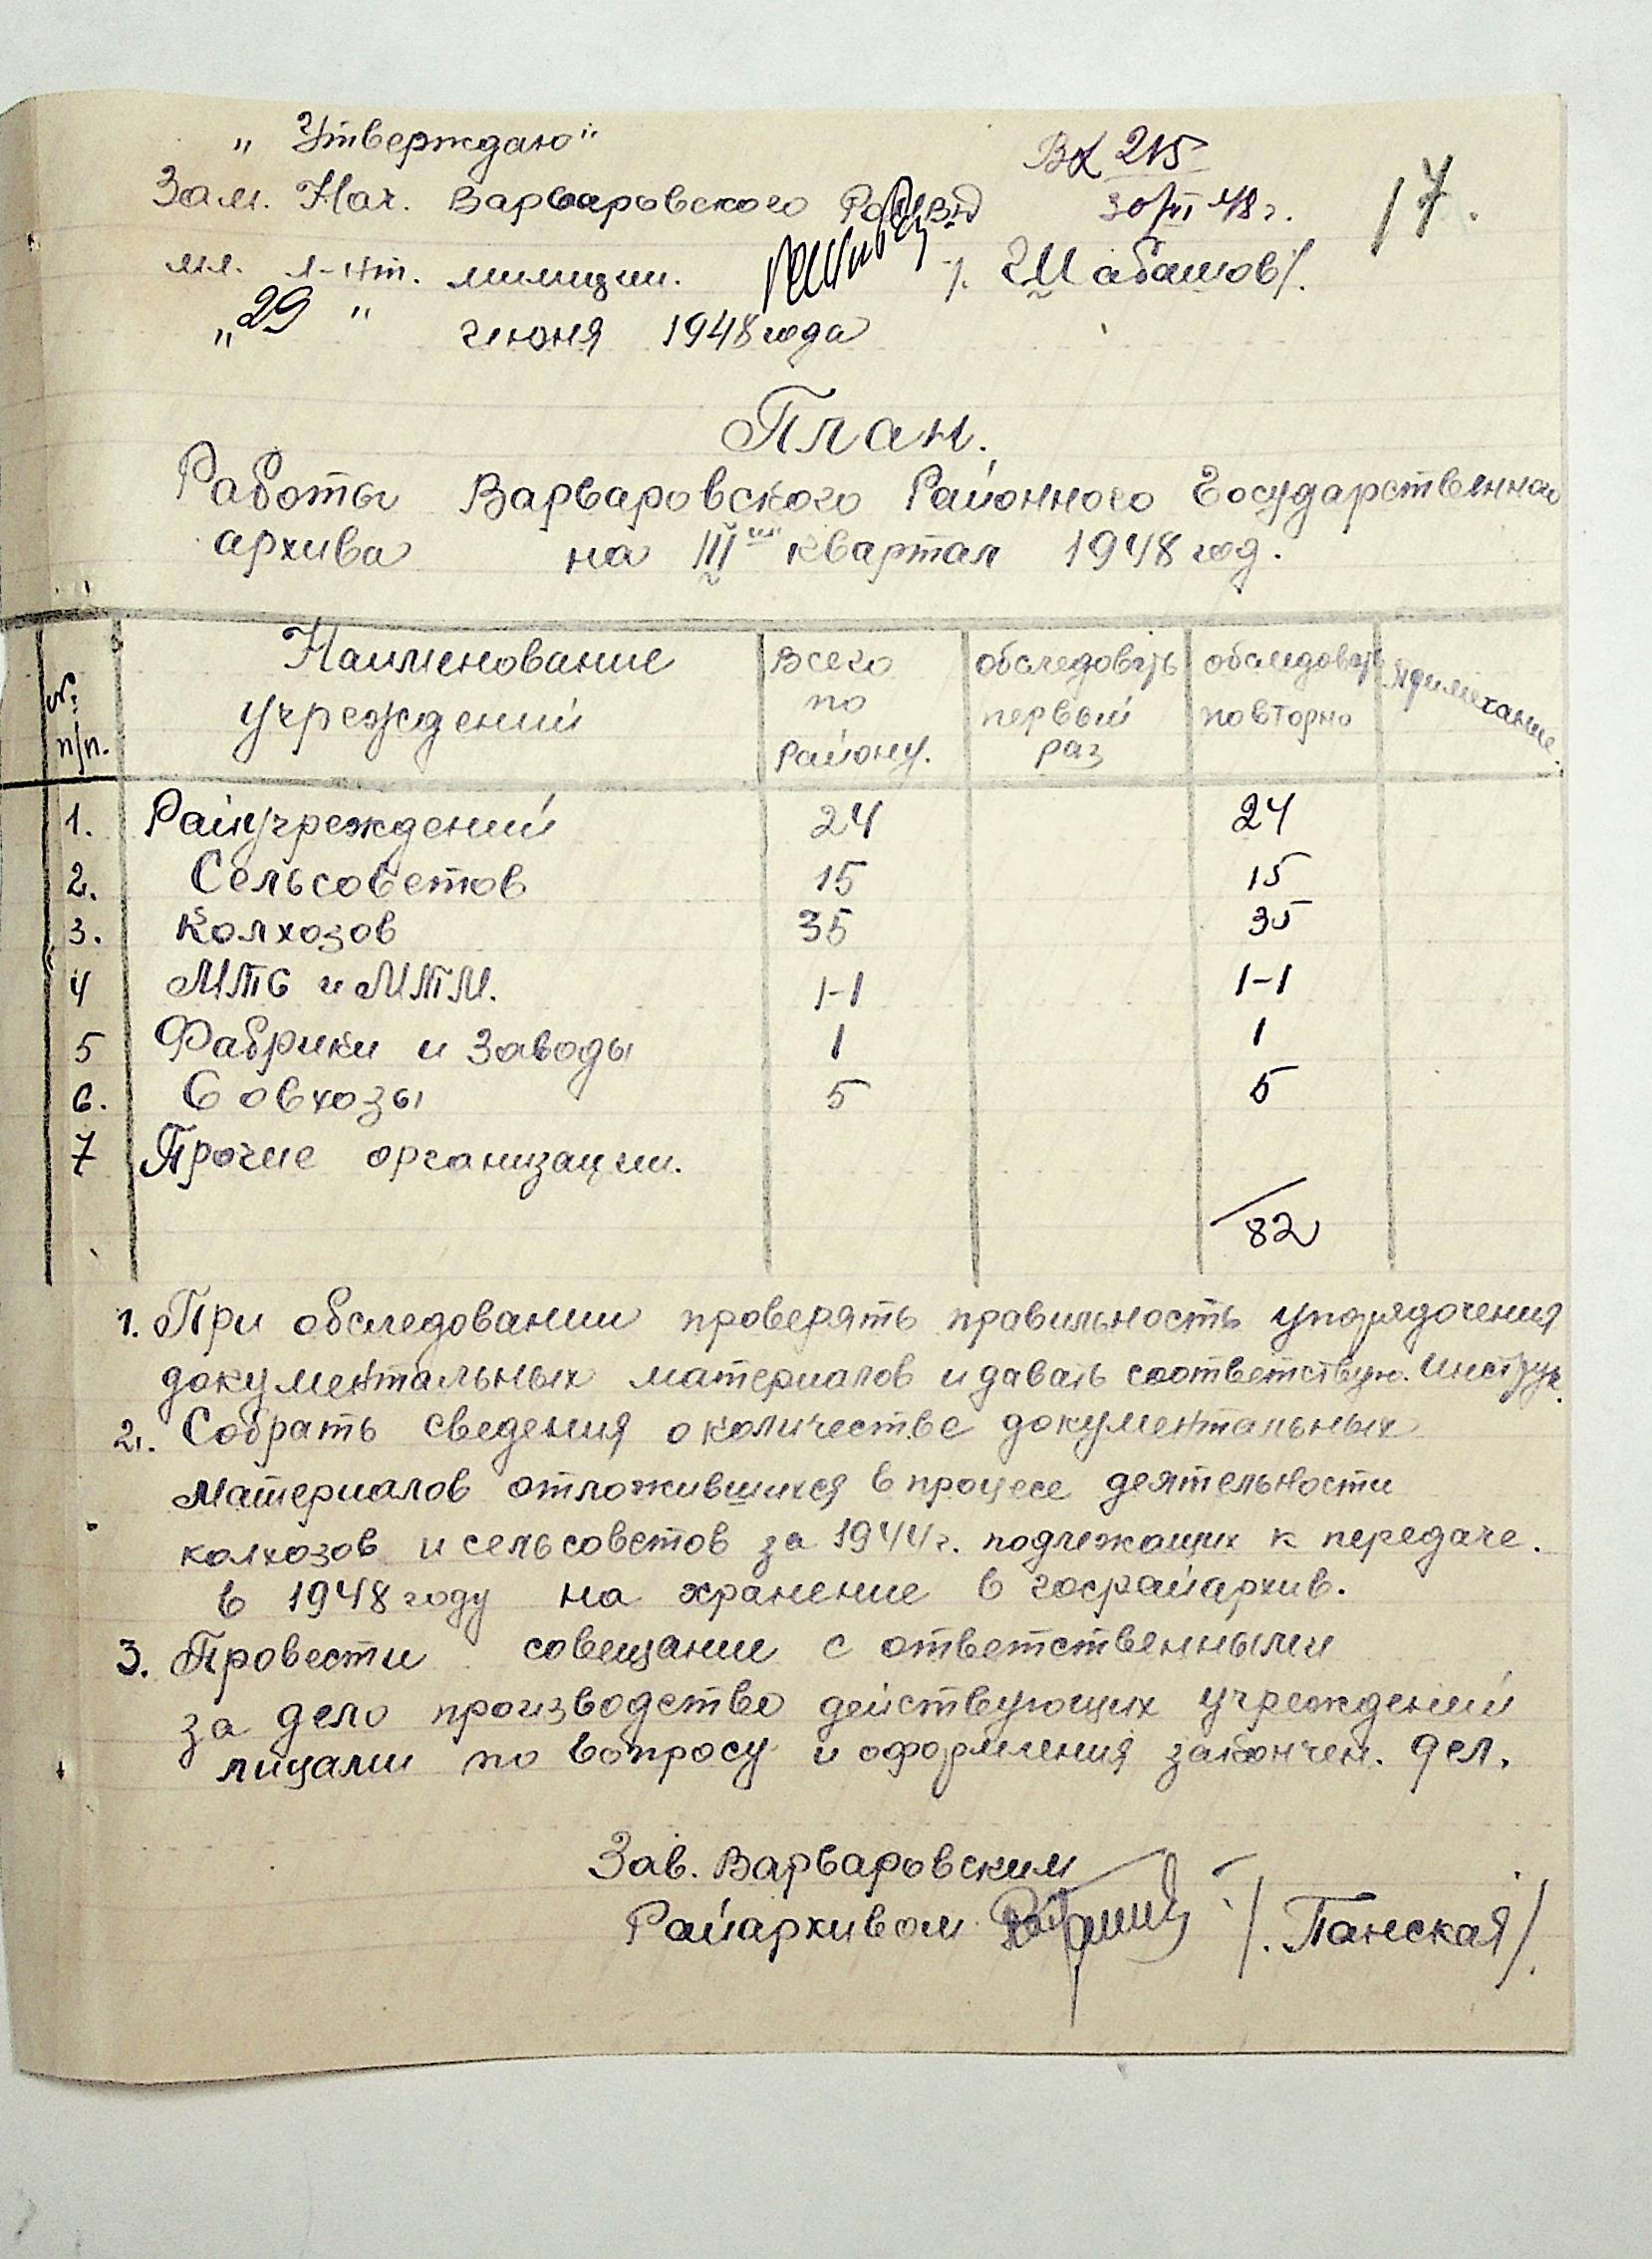 „Утверждаю"
Вх 215
Зам. Нач. Варваровского РОМВД
30/VI 48 г.
17.
мл. л-нт. милиции. /. Шабашов/.
„29" июня 1948 года
План.
Работы Варваровского Районного Государственного
архива на III ий квартал 1948 год.
№ п/п. Наименование учреждений Всего по Району. обследовать первый раз обследовать повторно Примечание.
1. Райучреждений 24 24
2. Сельсоветов 15 15
3. Колхозов 35 35
4 МТС и МТМ. 1-1 1-1
5 Фабрики и Заводы 1 1
6. Совхозы 5 5
7 Прочие организации.
82
1. При обследовании проверять правильность упорядочения
документальных материалов и давать соответствую. инструк.
2. Собрать сведения о количестве документальных
материалов отложившихся в процесе деятельности
колхозов и сельсоветов за 1944 г. подлежащих к передаче.
в 1948 году на хранение в госрайархив.
3. Провести совещании с ответственными
за дело производство действующих учреждений
лицами по вопросу и оформления закончен. дел.
Зав. Варваровским
Райархивом /. Панская/.